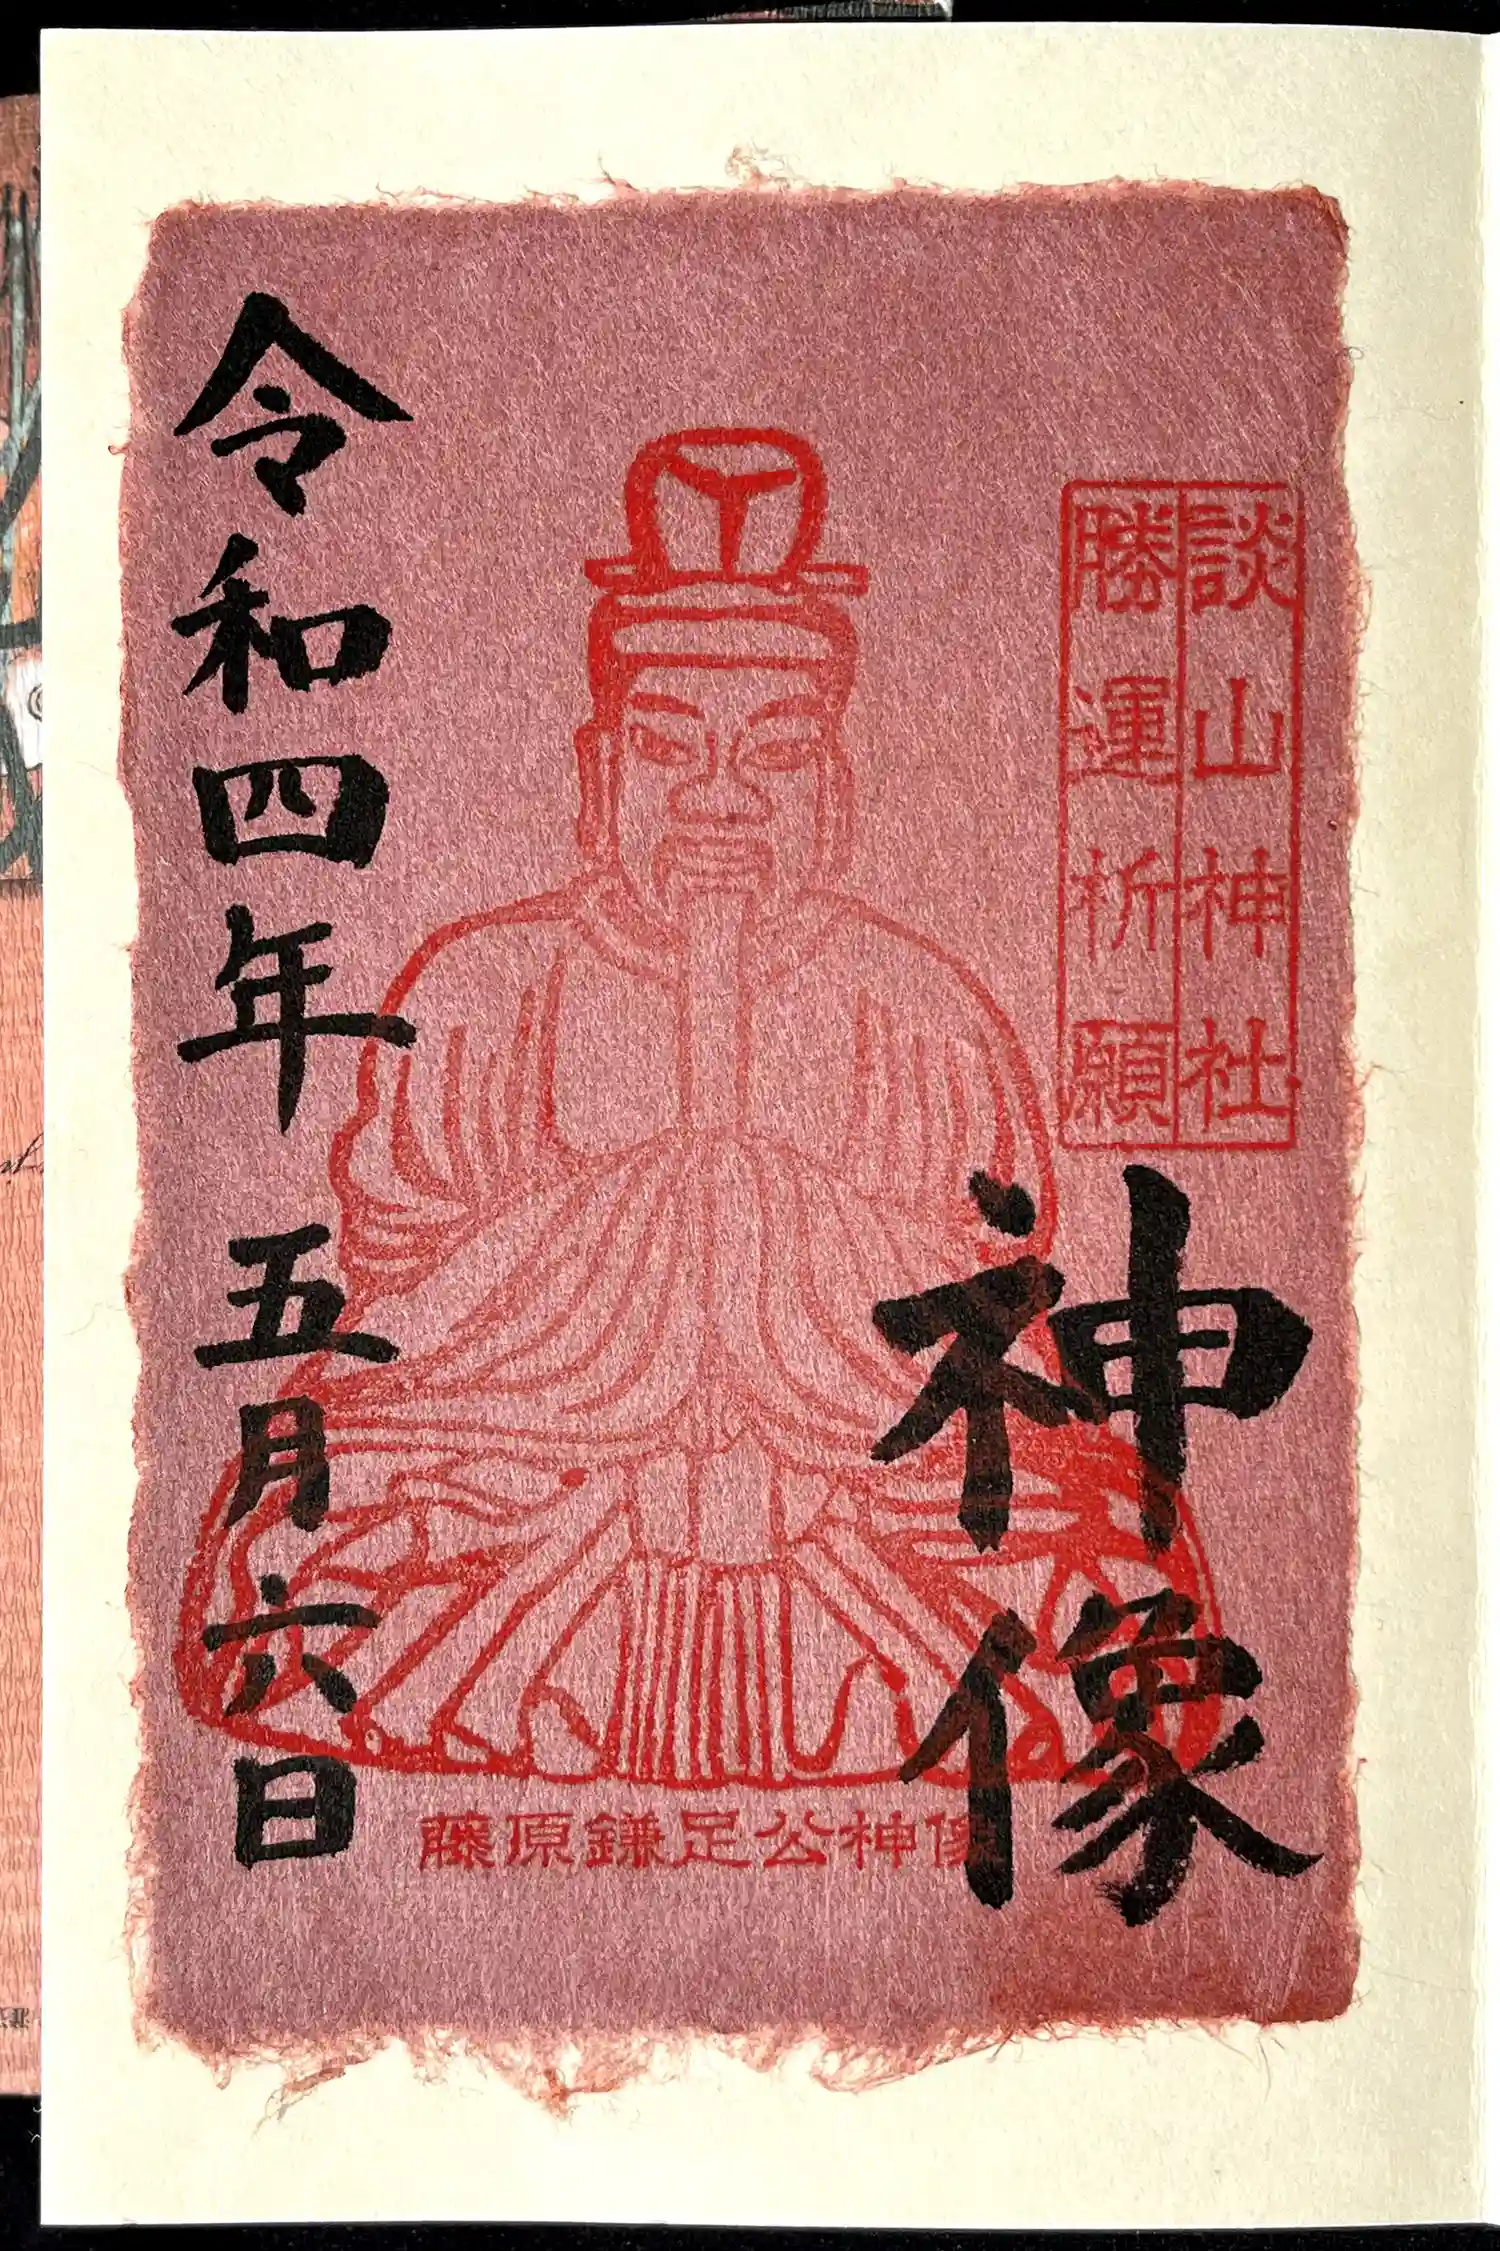 談山神社
勝運祈願
神像
藤原鎌足公神像
令和四年 五月六日